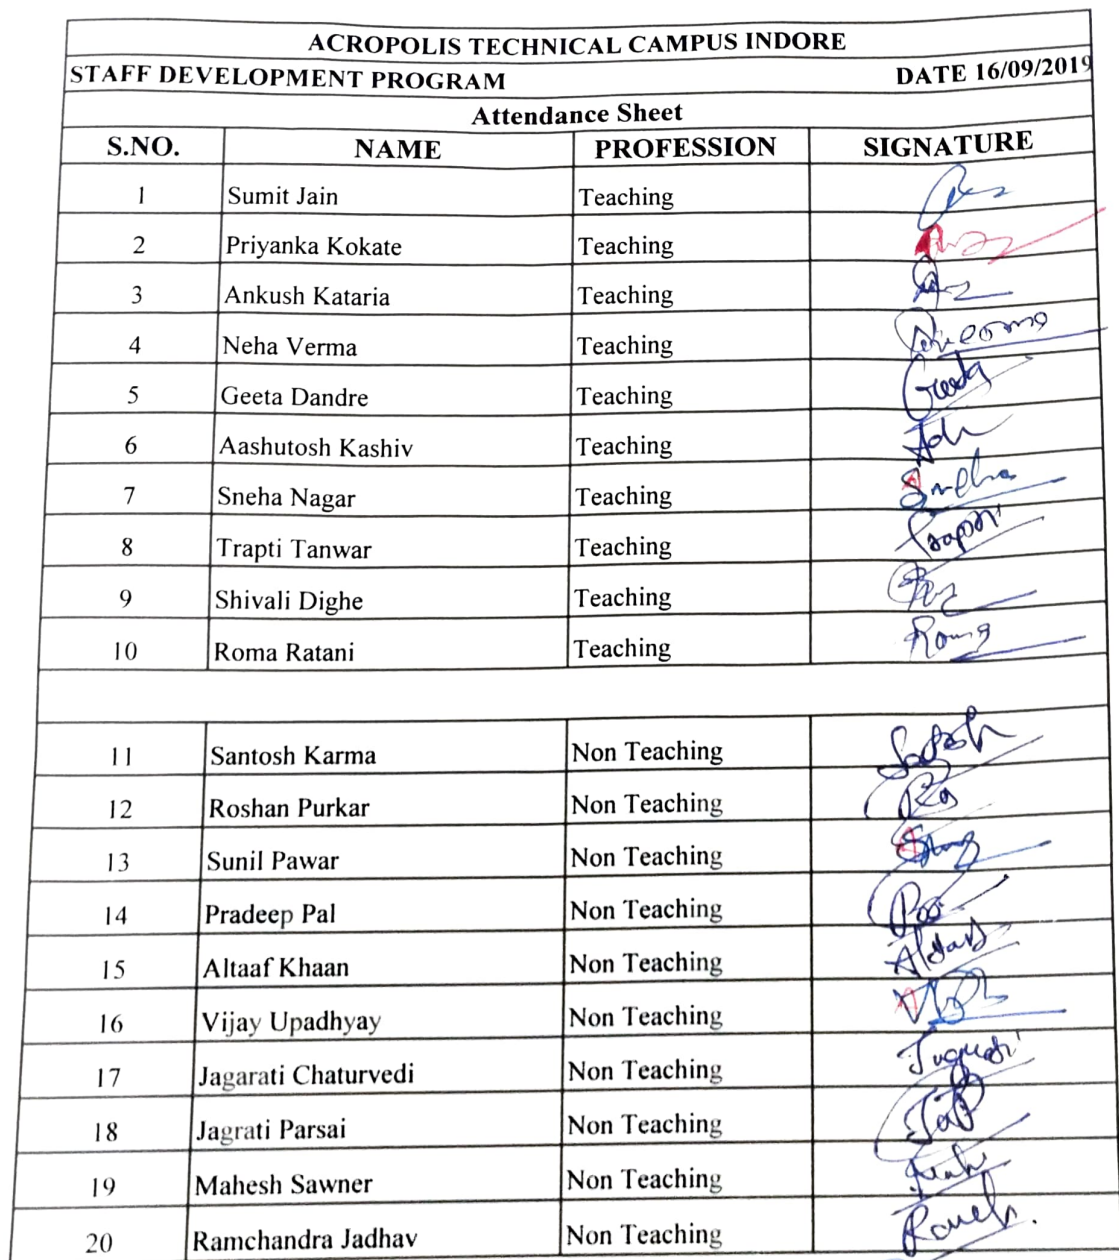 ACROPOLIS TECHNICAL CAMPUS INDORE
STAFF DEVELOPMENT PROGRAM DATE 16/09/2019
Attendance Sheet
S.NO. NAME PROFESSION SIGNATURE
1 Sumit Jain Teaching
2 Priyanka Kokate Teaching
3 Ankush Kataria Teaching
4 Neha Verma Teaching
5 Geeta Dandre Teaching Geeta
6 Aashutosh Kashiv Teaching
7 Sneha Nagar Teaching Sneha
8 Trapti Tanwar Teaching Trapti
9 Shivali Dighe Teaching
10 Roma Ratani Teaching Roma
11 Santosh Karma Non Teaching
12 Roshan Purkar Non Teaching
13 Sunil Pawar Non Teaching
14 Pradeep Pal Non Teaching
15 Altaaf Khaan Non Teaching
16 Vijay Upadhyay Non Teaching
17 Jagarati Chaturvedi Non Teaching
18 Jagrati Parsai Non Teaching
19 Mahesh Sawner Non Teaching
20 Ramchandra Jadhav Non Teaching